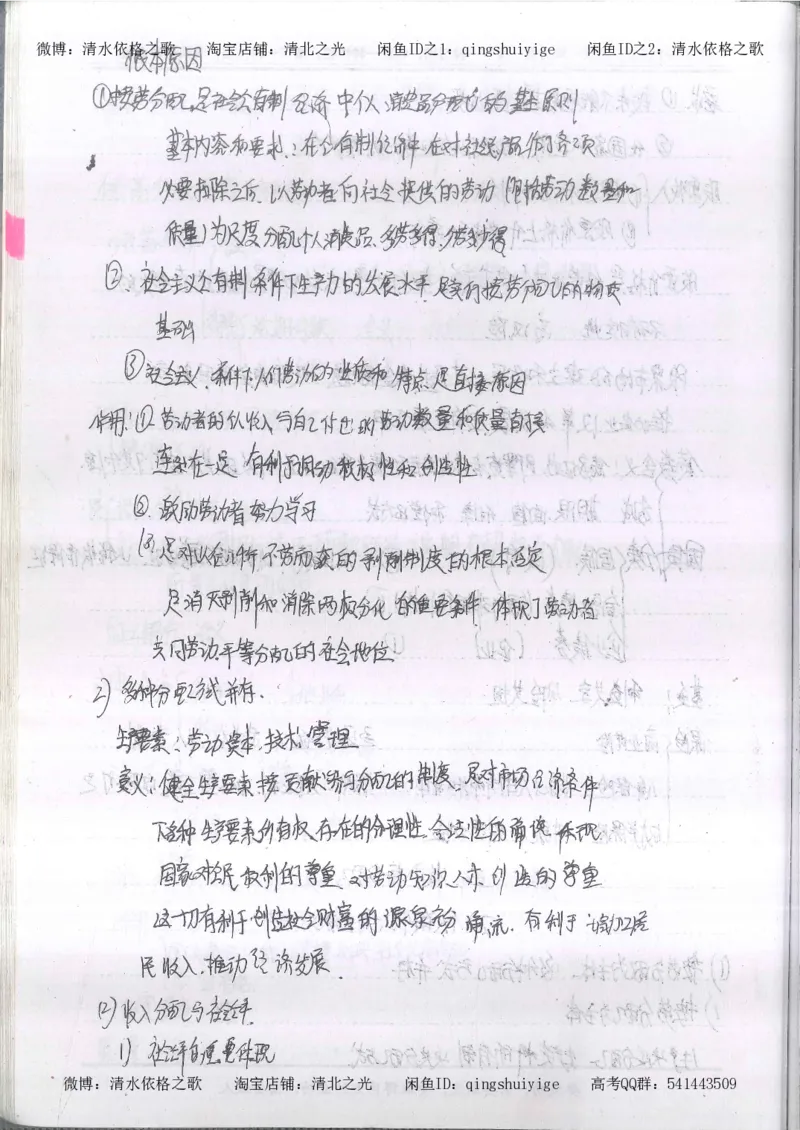 微博：清水依格之歌 淘宝店铺：清北之光 闲鱼ID之1：qingshuiyige 闲鱼ID之2：清水依格之歌
根本原因
①按劳分配是社会公有制经济中个人消费品分配的基本原则
基本内容和要求：在公有制经济中在对社会总产品作了各项
必要扣除之后，以劳动者向社会提供的劳动（包括劳动数量和
质量）为尺度分配个人消费品，多劳多得，少劳少得
② 社会主义公有制条件下生产力的发展水平是实行按劳分配的物质
基础
③社会主义条件下人们劳动的性质和特点是直接原因
作用：①劳动者的个人收入与自己付出的劳动数量和质量直接
连系在一起 有利于调动积极性和创造性
②激励劳动者努力学习
③是对以往几千年不劳而获的剥削制度的根本否定
是消灭剥削和消除两极分化的重要条件 体现了劳动者
共同劳动，平等分配的社会地位
2）多种分配方式并存.
生产要素：劳动资本，技术，管理
意义：健全生产要素按贡献参与分配的制度，是对市场经济条件
下各种生产要素所有权存在的合理性，合法性的确认，体现
国家对公民权利的尊重，对劳动知识人才创造的尊重
这一切有利于创造社会财富的源泉充分涌流，有利于增加居
民收入，推动经济发展.
(2)收入分配与社会公平
1）社会公平的重要体现
微博：清水依格之歌 淘宝店铺：清北之光 闲鱼ID：qingshuiyige 高考QQ群：541443509